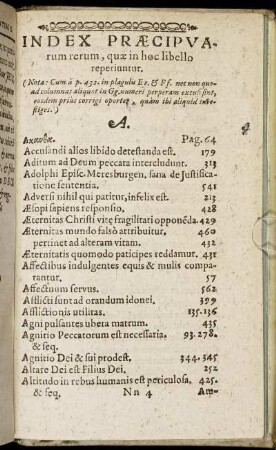 INDEX PRÆCIPVA
rum rerum, quæ in hoc libello
reperiuntur.
(Nota: Cum à p. 432. in plagulis Ee. & Ff. nec non quo-
ad columnas aliquot in Gg. numeri perperam excusi sint,
eosdem prius corrigi oportet, quàm ibi aliquid inve-
stiges.)
A.
Pag. 64
Accusandi alios libido detestanda est. 179
Aditum ad Deum peccata intercludunt. 313
Adolphi Episc. Meresburgen. sana de Justifica-
tione sententia. 541
Adversi nihil qui patitur, infelix est. 213
Æsopi sapiens responsio. 428
Æternitas Christi vitę fragilitati opponēda. 429
Æternitas mundo falsò attribuitur. 460
pertinet ad alteram vitam. 432
Æternitatis quomodo paticipes reddamur. 431
Affectibus indulgentes equis & mulis compa-
rantur. 57
Affectuum servus. 562
Afflicti sunt ad orandum idonei. 399
Afflictionis utilitas. 135. 136
Agni pulsantes ubera matrum. 435
Agnitio Peccatorum est necessaria. 93. 278.
& seq.
Agnitio Dei & sui prodest. 344. 345
Altare Dei est Filius Dei. 252
Altitudo in rebus humanis est periculosa. 425.
& seq. Nn 4 Am-